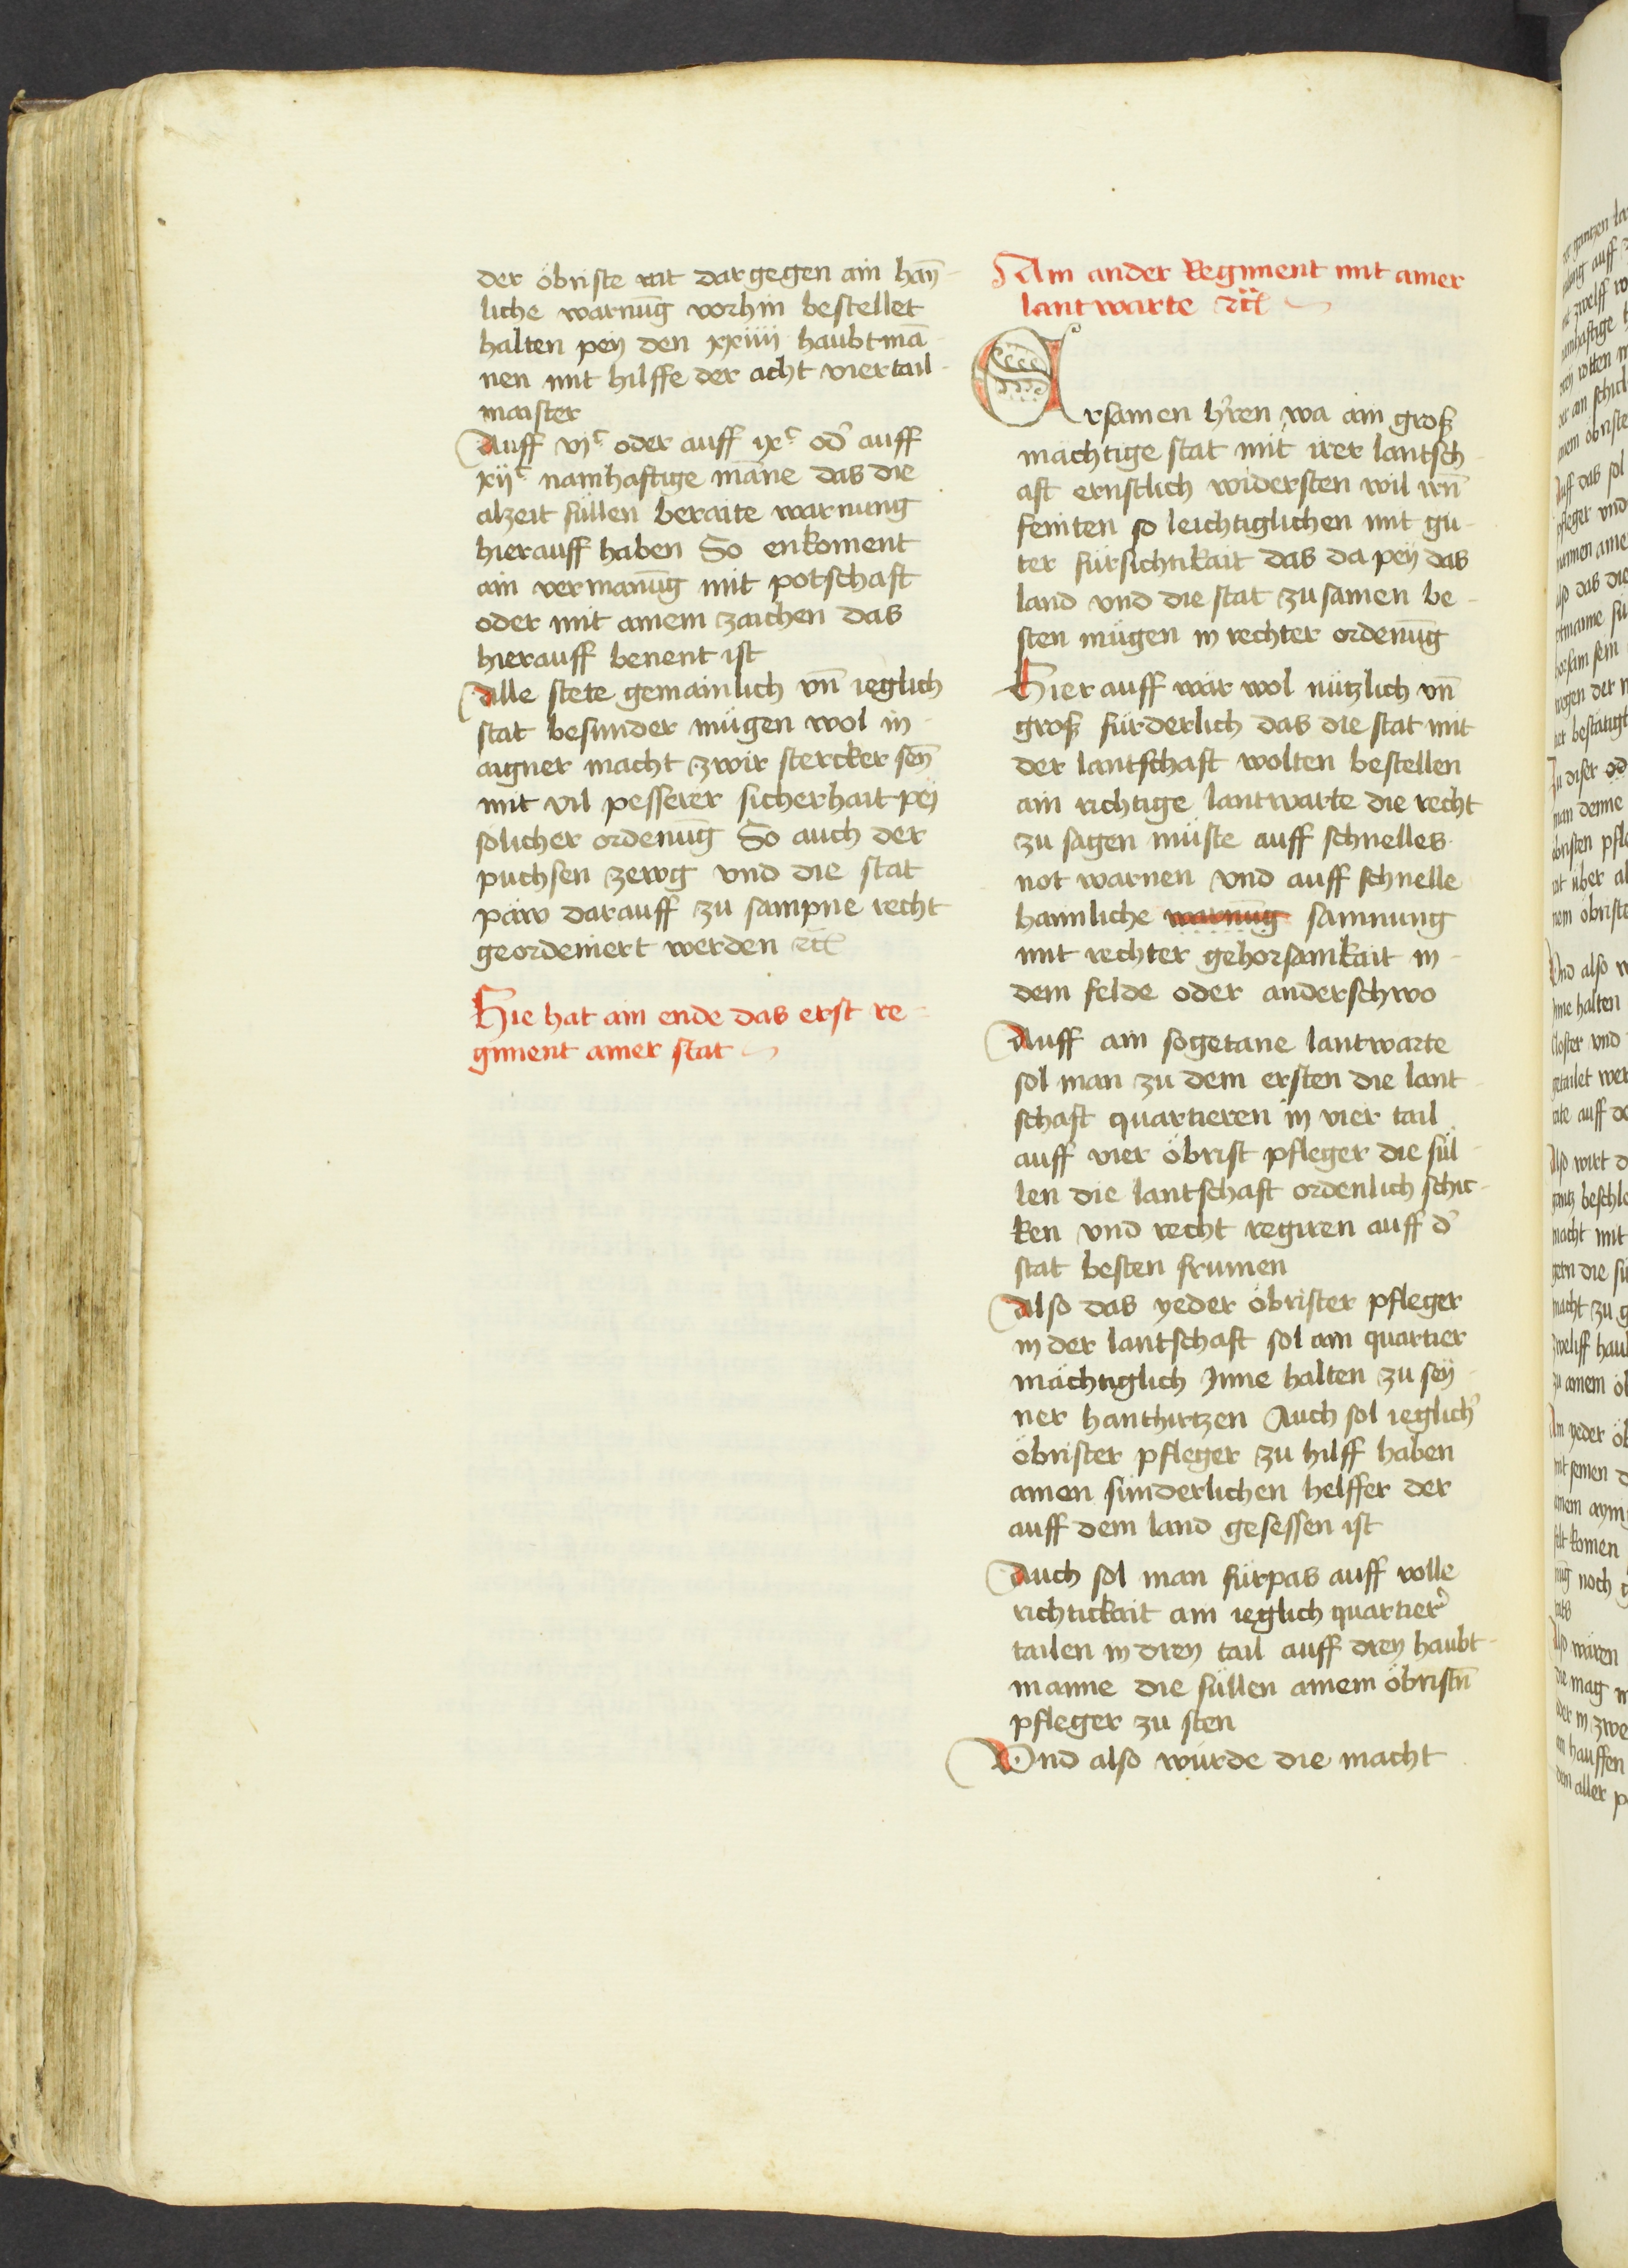 der öbriste rat dar gegen ain hay̅
liche warnu̅g vorhin bestellet
halten pey den xxiiii haubtma̅
nen mit hilffe der acht viertail
maister
Auff vjᶜ oder auff ixᶜ od' auff
xijᶜ namhaftige ma̅ne das die
alzeit süllen beraite warnung
hierauff haben So enkoment
ain vermanu̅g mit potschaft
oder mit ainem zaichen das
hierauff benent ist
Alle stete gemainlich vn̅ ieglich
stat besunder mügen wol in
aigner macht zwir stercker sey̅
mit vil pesserer sicherhait pey
solicher ordenu̅g So auch der
puchsen zewg vnd die stat
päw darauff zu sampne recht
geordeniert werden ꝛc̃
Hie hat ain ende das erst re
giment ainer stat
Ain ander Regiment mit ainer
lantwarte ꝛc̃
Ersamen h'ren wa ain groß
mächtige stat mit irer lantsch
aft ernstlich widersten wil irn̅
feinten so leichtiglichen mit gu
ter fürsichtikait das da pey das
land vnd die stat zu samen be
sten mügen in rechter ordenu̅g
Hier auff wär wol nützlich vn̅
groß fürderlich das die stat mit
der lantschaft wolten bestellen
ain richtige lantwarte die recht
zu sagen müste auff schnelles
not warnen vnd auff schnelle
haimliche warnu̅g samnung
mit rechter gehorsamkait in
dem felde oder anderschwo
Auff ain sogetane lantwarte
sol man zu dem ersten die lant
schaft quartieren in vier tail
auff vier öbrist pfleger die sül
len die lantschaft ordenlich schic
ken vnd recht regiren auff d'
stat besten frumen
Also das yeder öbrister pfleger
in der lantschaft sol ain quartier
mächtiglich Inne halten zu sey
ner hanthirtzen Auch sol ieglich'
öbrister pfleger zu hilff haben
ainen sunderlichen helffer der
auff dem land gesessen ist
Auch sol man fürpas auff volle
richtickait ain ieglich quartier'
tailen in drey tail auff drey haubt
manne die süllen ainem öbristn̅
pfleger zu sten
Vnd also würde die macht